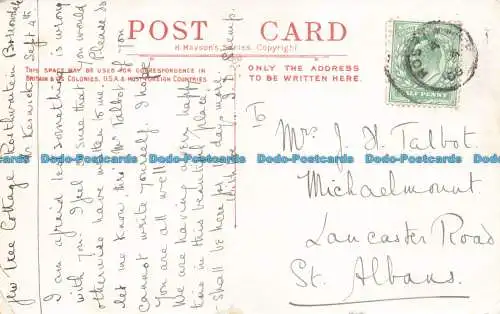 POST CARD
H. Mayson's Series. Copyright
THIS SPACE MAY BE USED FOR CORRESPONDENCE IN
BRITAIN & THE COLONIES, U.S.A. & MOST FOREIGN COUNTRIES.
ONLY THE ADDRESS
TO BE WRITTEN HERE.
Yew Tree Cottage Rosthwaite in Borrowdale
Nr Keswick Sept 4th
I am afraid lest something is wrong
with you. I feel sure that you would
otherwise have written to me. Please do
let me know thro' Mr Talbot if you
cannot write yourself. I hope
you are all well.
We are having a very happy
time in this beautiful place
shall be here for 10 days more.
With love
Mrs J. H. Talbot.
Michaelmount.
Lancaster Road
St. Albans.
HALF PENNY
Dodo-Postcards Dodo-Postcards Dodo-Postcards Dodo-Postcards
Dodo-Postcards.com